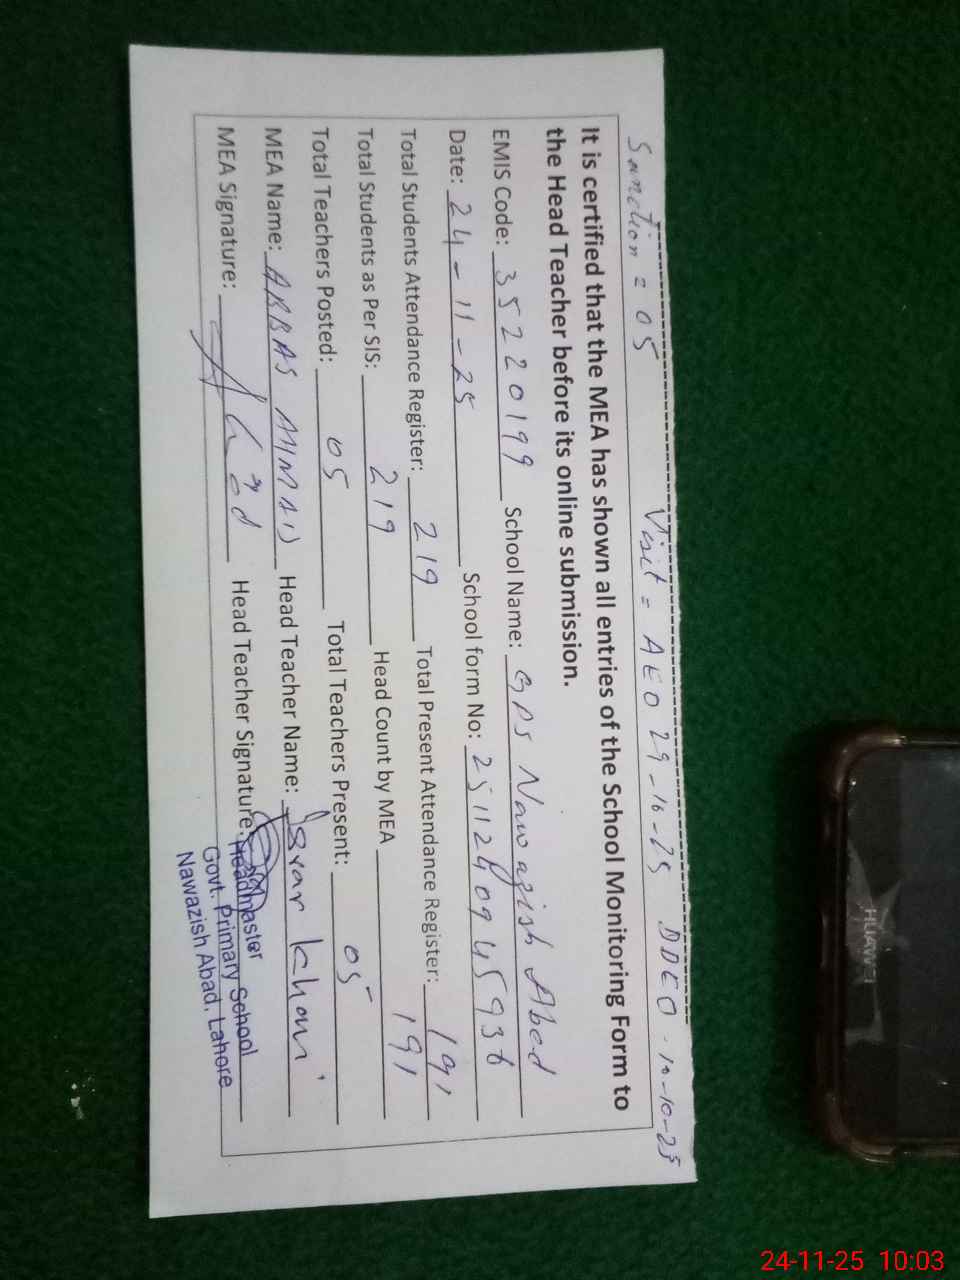 Sanction = 05 Visit = AEO 29-10-25 DDEO - 10-10-25
It is certified that the MEA has shown all entries of the School Monitoring Form to
the Head Teacher before its online submission.
EMIS Code: 35220199 School Name: GPS Nawazish Abad
Date: 24-11-25 School form No: 2511240945936
Total Students Attendance Register: 219 Total Present Attendance Register: 191
Total Students as Per SIS: 219 Head Count by MEA 191
Total Teachers Posted: 05 Total Teachers Present: 05
MEA Name: ABBAS AHMAD Head Teacher Name: Israr Khan
MEA Signature: Head Teacher Signature:
Headmaster
Govt. Primary School
Nawazish Abad, Lahore
HUAWEI
24-11-25 10:03